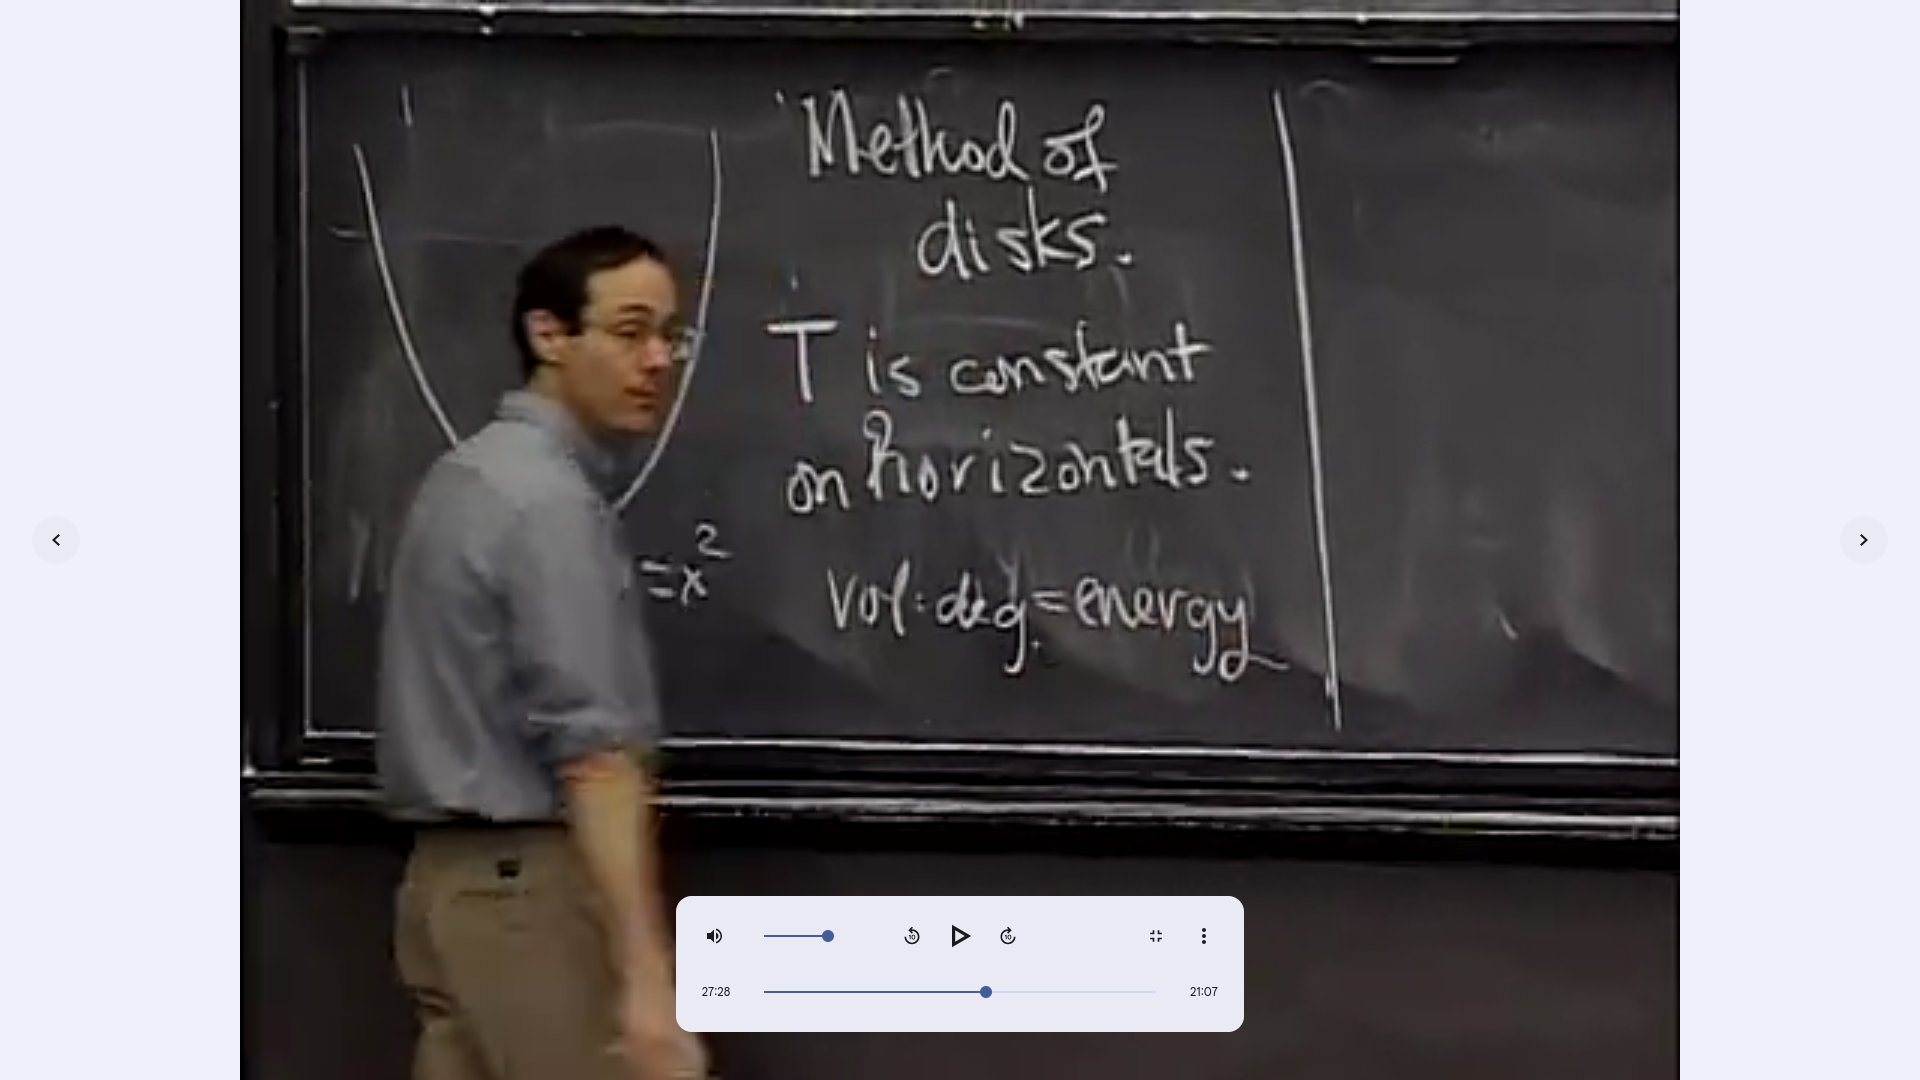 Method of
disks.
T is constant
on horizontals.
=x²
Vol·deg=energy
10
10
27:28
21:07